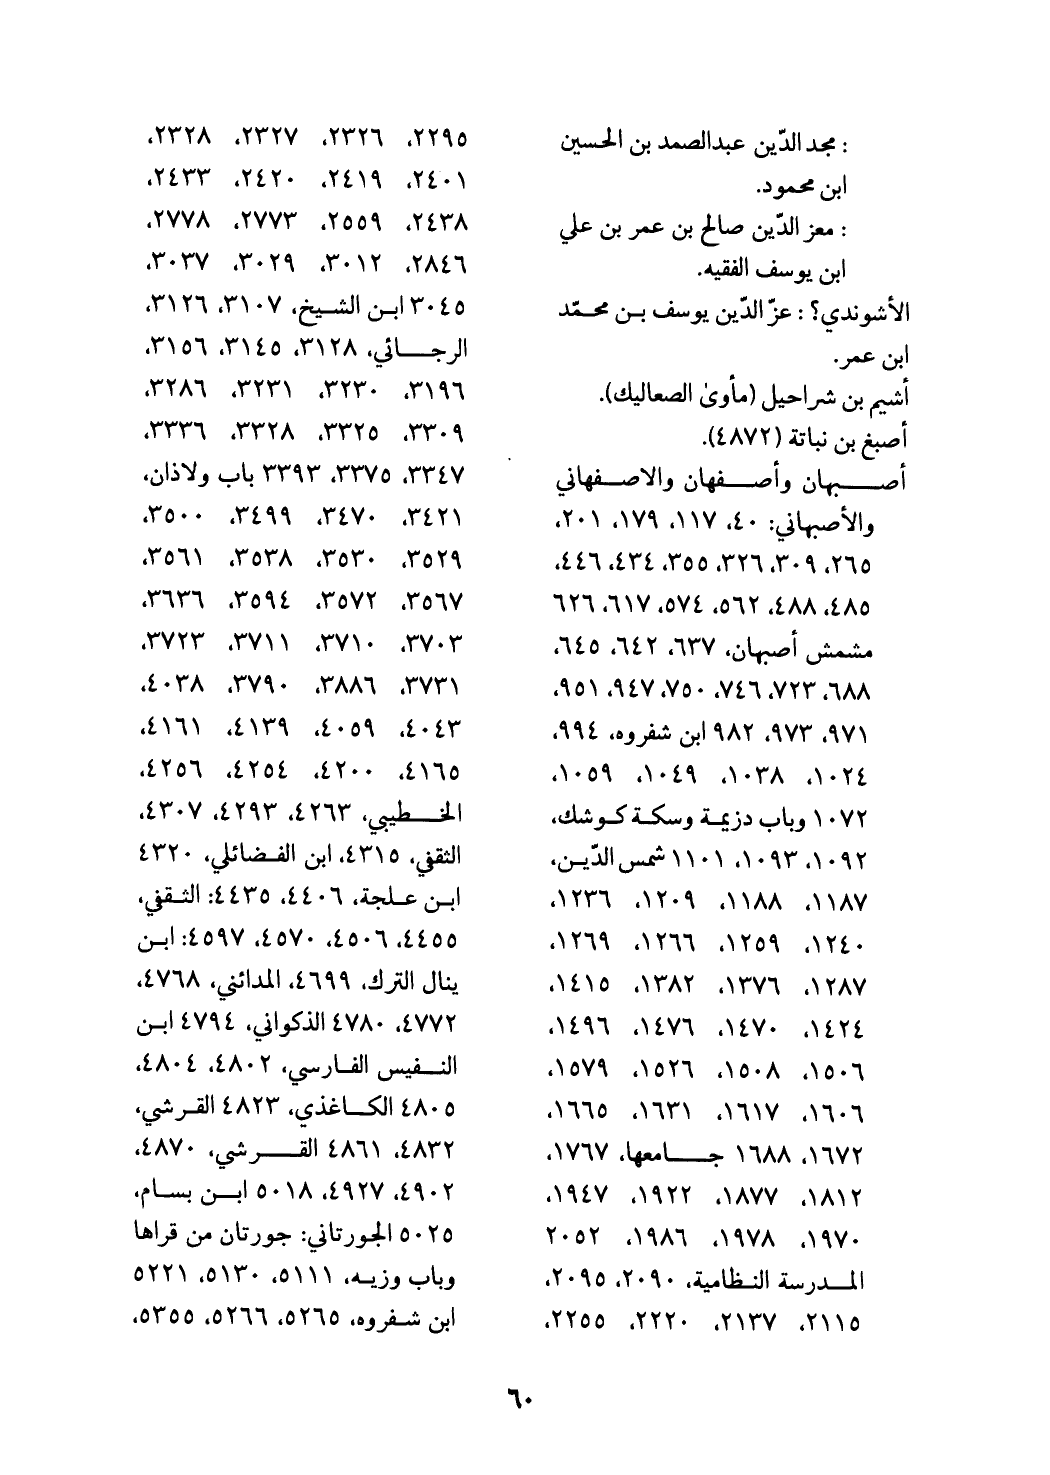 : مجد الدّين عبدالصمد بن الحسين
ابن محمود.
: معز الدّين صالح بن عمر بن علي
ابن يوسف الفقيه.
الأشوندي؟ : عزّ الدّين يوسف بـن محـمّد
ابن عمر.
أشيم بن شراحيل (مأوىٰ الصعاليك).
أصبغ بن نباتة (٤٨٧٢).
أصـبهان وأصـفهان والاصـفهاني
والأصبهاني: ٤٠، ١١٧، ١٧٩، ٢٠١،
٢٦٥، ٣٠٩، ٣٢٦، ٣٥٥، ٤٣٤، ٤٤٦،
٤٨٥، ٤٨٨، ٥٦٢، ٥٧٤، ٦١٧، ٦٢٦
مشمش أصبهان، ٦٣٧، ٦٤٢، ٦٤٥،
٦٨٨، ٧٢٣، ٧٤٦، ٧٥٠، ٩٤٧، ٩٥١،
٩٧١، ٩٧٣، ٩٨٢ ابن شفروه، ٩٩٤،
١٠٢٤، ١٠٣٨، ١٠٤٩، ١٠٥٩،
١٠٧٢ وباب دزيمـة وسكـة كـوشك،
١٠٩٢، ١٠٩٣، ١١٠١ شمس الدّيـن،
١١٨٧، ١١٨٨، ١٢٠٩، ١٢٣٦،
١٢٤٠، ١٢٥٩، ١٢٦٦، ١٢٦٩،
١٢٨٧، ١٣٧٦، ١٣٨٢، ١٤١٥،
١٤٢٤، ١٤٧٠، ١٤٧٦، ١٤٩٦،
١٥٠٦، ١٥٠٨، ١٥٢٦، ١٥٧٩،
١٦٠٦، ١٦١٧، ١٦٣١، ١٦٦٥،
١٦٧٢، ١٦٨٨ جـامعها، ١٧٦٧،
١٨١٢، ١٨٧٧، ١٩٢٢، ١٩٤٧،
١٩٧٠، ١٩٧٨، ١٩٨٦، ٢٠٥٢
المـدرسة النـظامية، ٢٠٩٠، ٢٠٩٥،
٢١١٥، ٢١٣٧، ٢٢٢٠، ٢٢٥٥،
٢٢٩٥، ٢٣٢٦، ٢٣٢٧، ٢٣٢٨،
٢٤٠١، ٢٤١٩، ٢٤٢٠، ٢٤٣٣،
٢٤٣٨، ٢٥٥٩، ٢٧٧٣، ٢٧٧٨،
٢٨٤٦، ٣٠١٢، ٣٠٢٩، ٣٠٣٧،
٣٠٤٥ ابـن الشـيخ، ٣١٠٧، ٣١٢٦،
الرجـائي، ٣١٢٨، ٣١٤٥، ٣١٥٦،
٣١٩٦، ٣٢٣٠، ٣٢٣١، ٣٢٨٦،
٣٣٠٩، ٣٣٢٥، ٣٣٢٨، ٣٣٣٦،
٣٣٤٧، ٣٣٧٥، ٣٣٩٣ باب ولاذان،
٣٤٢١، ٣٤٧٠، ٣٤٩٩، ٣٥٠٠،
٣٥٢٩، ٣٥٣٠، ٣٥٣٨، ٣٥٦١،
٣٥٦٧، ٣٥٧٢، ٣٥٩٤، ٣٦٣٦،
٣٧٠٣، ٣٧١٠، ٣٧١١، ٣٧٢٣،
٣٧٣١، ٣٨٨٦، ٣٧٩٠، ٤٠٣٨،
٤٠٤٣، ٤٠٥٩، ٤١٣٩، ٤١٦١،
٤١٦٥، ٤٢٠٠، ٤٢٥٤، ٤٢٥٦،
الخـطيبي، ٤٢٦٣، ٤٢٩٣، ٤٣٠٧،
الثقفي، ٤٣١٥، ابن الفـضائلي، ٤٣٢٠
ابـن عـلجة، ٤٤٠٦، ٤٤٣٥: الثـقفي،
٤٤٥٥، ٤٥٠٦، ٤٥٧٠، ٤٥٩٧: ابـن
ينال الترك، ٤٦٩٩، المدائني، ٤٧٦٨،
٤٧٧٢، ٤٧٨٠ الذكواني، ٤٧٩٤ ابـن
النـفيس الفـارسي، ٤٨٠٢، ٤٨٠٤،
٤٨٠٥ الكـاغذي، ٤٨٢٣ القـرشي،
٤٨٣٢، ٤٨٦١ القـرشي، ٤٨٧٠،
٤٩٠٢، ٤٩٢٧، ٥٠١٨ ابـن بسـام،
٥٠٢٥ الجورتاني: جورتان من قراها
وباب وزيـه، ٥١١١، ٥١٣٠، ٥٢٢١
ابن شـفروه، ٥٢٦٥، ٥٢٦٦، ٥٣٥٥،
٦٠